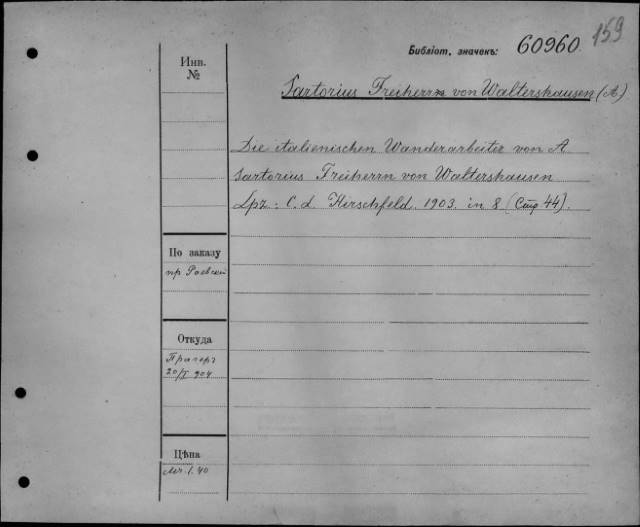 Библіот. значекъ: 60960
159
Инв.
№
Sartorius Freiherrn von Waltershausen (A)
Die italienischen Wanderarbeiter von A
Sartorius Freiherrn von Waltershausen
Lpz: C. L. Hirschfeld. 1903. in 8 (Стр 44).
По заказу
пр Раевскій
Откуда
Прагеръ
20/I 904
Цѣна
Мк. 1.40